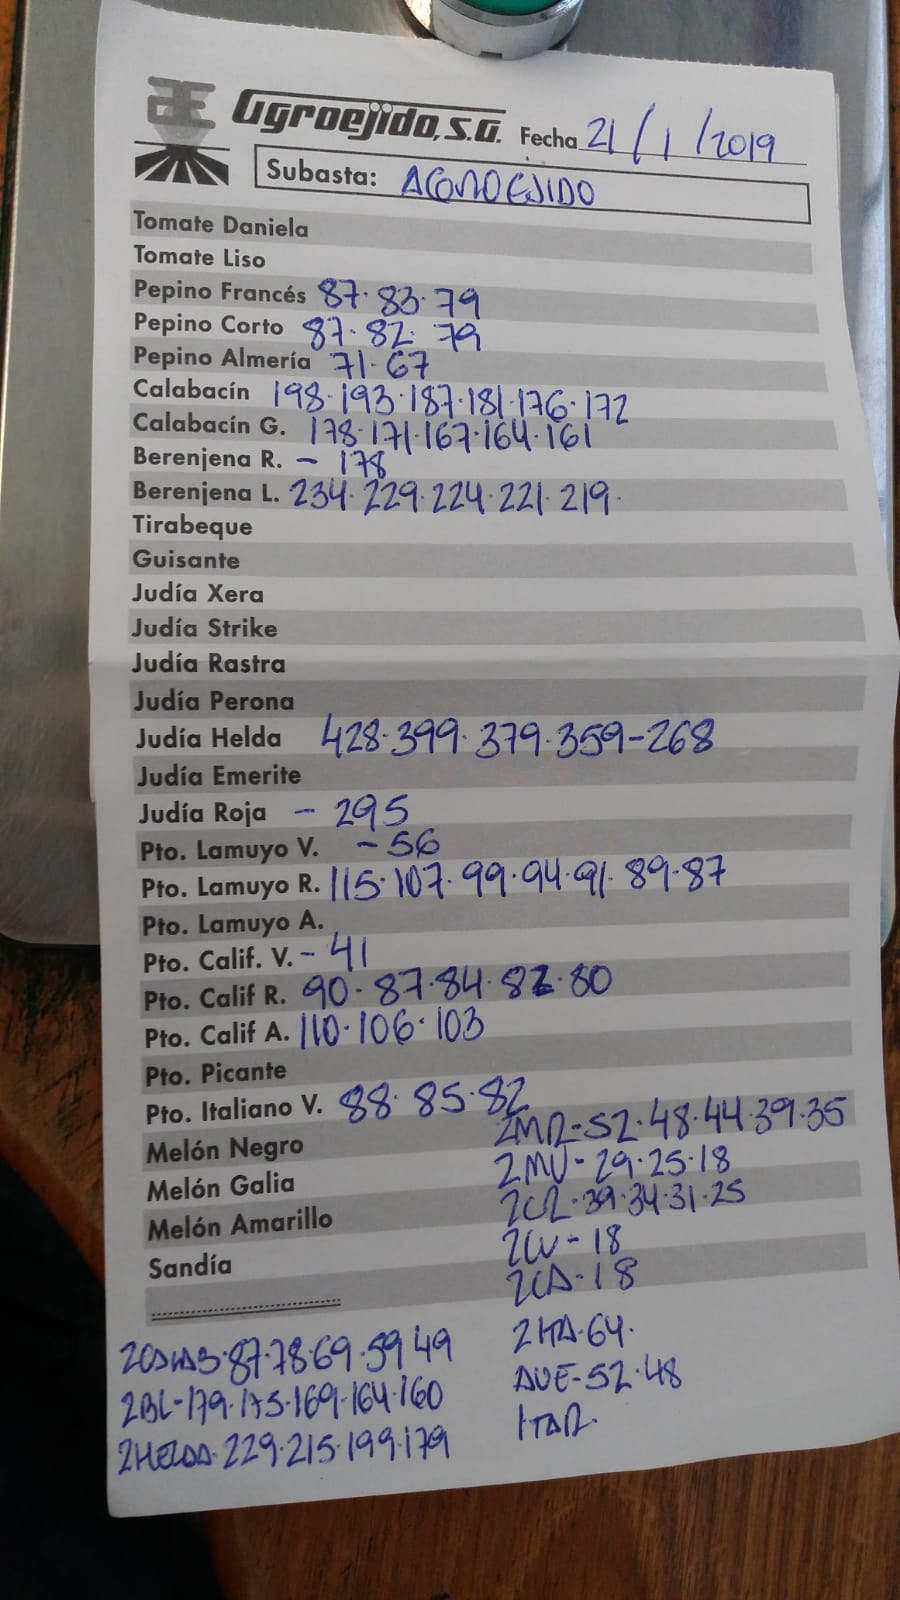 Agroejido, S.A. Fecha 21/1/2019
Subasta: AGROEJIDO
Tomate Daniela
Tomate Liso
Pepino Francés 87·83·79
Pepino Corto 87·82·79
Pepino Almería 71·67
Calabacín 198·193·187·181·176·172
Calabacín G. 178·171·167·164·161
Berenjena R. - 178
Berenjena L. 234·229·224·221·219·
Tirabeque
Guisante
Judía Xera
Judía Strike
Judía Rastra
Judía Perona
Judía Helda 428·399·379·359-268
Judía Emerite
Judía Roja - 295
Pto. Lamuyo V. - 56
Pto. Lamuyo R. 115·107·99·94·91·89·87
Pto. Lamuyo A.
Pto. Calif. V. - 41
Pto. Calif R. 90·87·84·82·80
Pto. Calif A. 110·106·103
Pto. Picante
Pto. Italiano V. 88·85·82
Melón Negro 2MR-52·48·44·39·35
Melón Galia 2MV-29·25·18
Melón Amarillo 2CR·39·34·31·25
Sandía 2CV-18
2CA-18
2CALAB·87·78·69·59·49 2ITA·64·
2BL-179·175·169·164·160 AVE-52·48
2HELDA·229·215·199·179 1TAR·